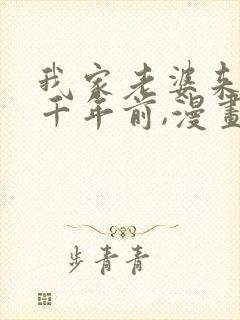 我家老婆来
千年前,漫畫
步青青